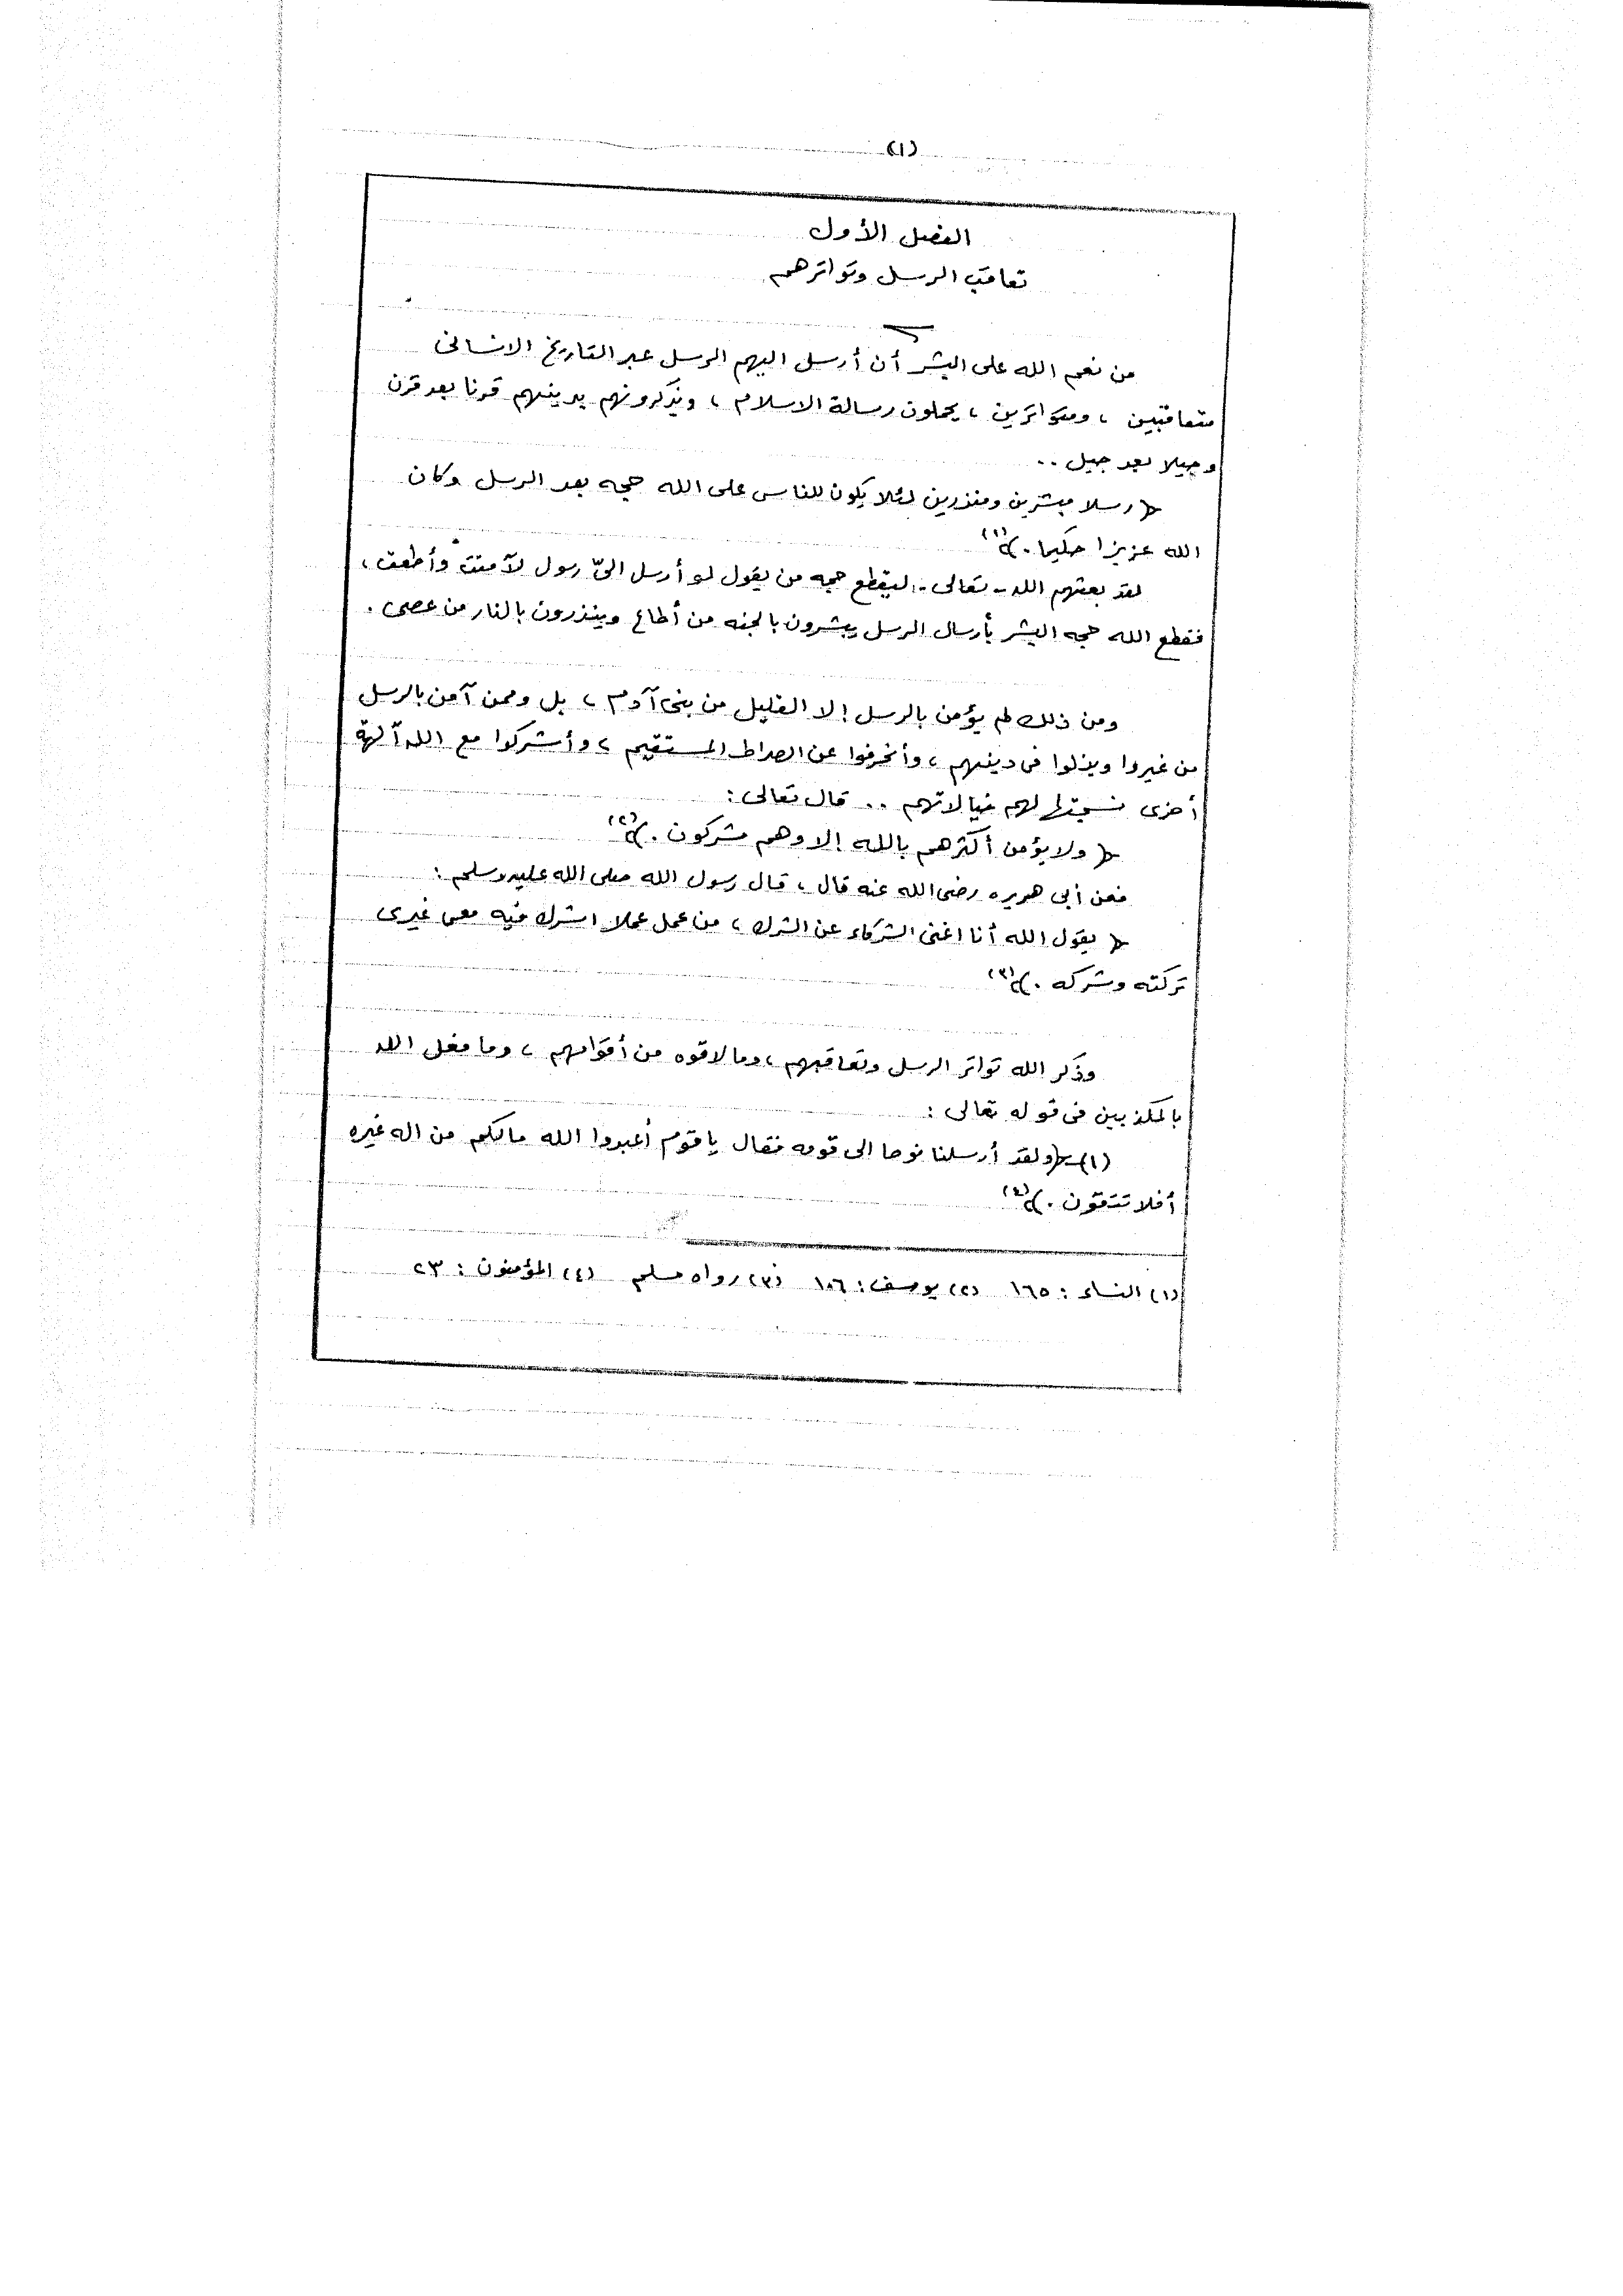 (١)
الفصل الأول
تعاقب الرسل وتواترهم
من نعم الله على البشر أن أرسل اليهم الرسل عبر التاريخ الانسانى
متعاقبين ، ومتواترين ، يحملون رسالة الاسلام ، ويذكرونهم بدينهم قرنا بعد قرن
وجيلا بعد جيل ..
﴿ رسلا مبشرين ومنذرين لئلا يكون للناس على الله حجه بعد الرسل وكان
الله عزيزا حكيما . ﴾ (١)
لقد بعثهم الله - تعالى - ليقطع حجه من يقول لو أرسل الىّ رسول لآمنت وأطعت ،
فقطع الله حجه البشر بأرسال الرسل يبشرون بالجنه من أطاع وينذرون بالنار من عصى .
ومن ذلك لم يؤمن بالرسل إلا القليل من بنى آدم ، بل وممن آمن بالرسل
من غيروا وبدلوا فى دينهم ، وأنحرفوا عن الصراط المستقيم ، وأشركوا مع الله آلهة
أخرى نسجتها لهم خيالاتهم .. قال تعالى :
﴿ ولا يؤمن أكثرهم بالله إلا وهم مشركون . ﴾ (٢)
فعن أبى هريره رضى الله عنه قال ، قال رسول الله صلى الله عليه وسلم :
﴿ يقول الله أنا اغنى الشركاء عن الشرك ، من عمل عملا اشرك فيه معى غيرى
تركته وشركه . ﴾ (٣)
وذكر الله تواتر الرسل وتعاقبهم ، وما لاقوه من أقوامهم ، وما فعل الله
بالمكذبين فى قوله تعالى :
(١) - ﴿ ولقد أرسلنا نوحا الى قومه فقال ياقوم أعبدوا الله مالكم من اله غيره
أفلا تتقون . ﴾ (٤)
(١) النساء : ١٦٥ (٢) يوسف : ١٠٦ (٣) رواه مسلم (٤) المؤمنون : ٢٣